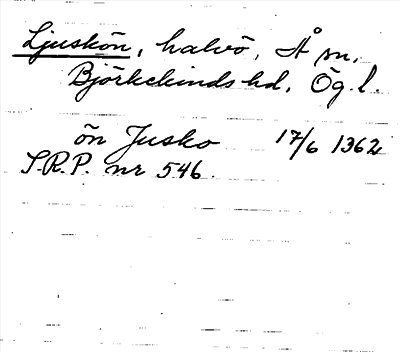 Ljuskön, halvö, Å sn,
Björkekinds hd, Ög. l.
ön Jusko 17/6 1362
S.R.P. nr 546.